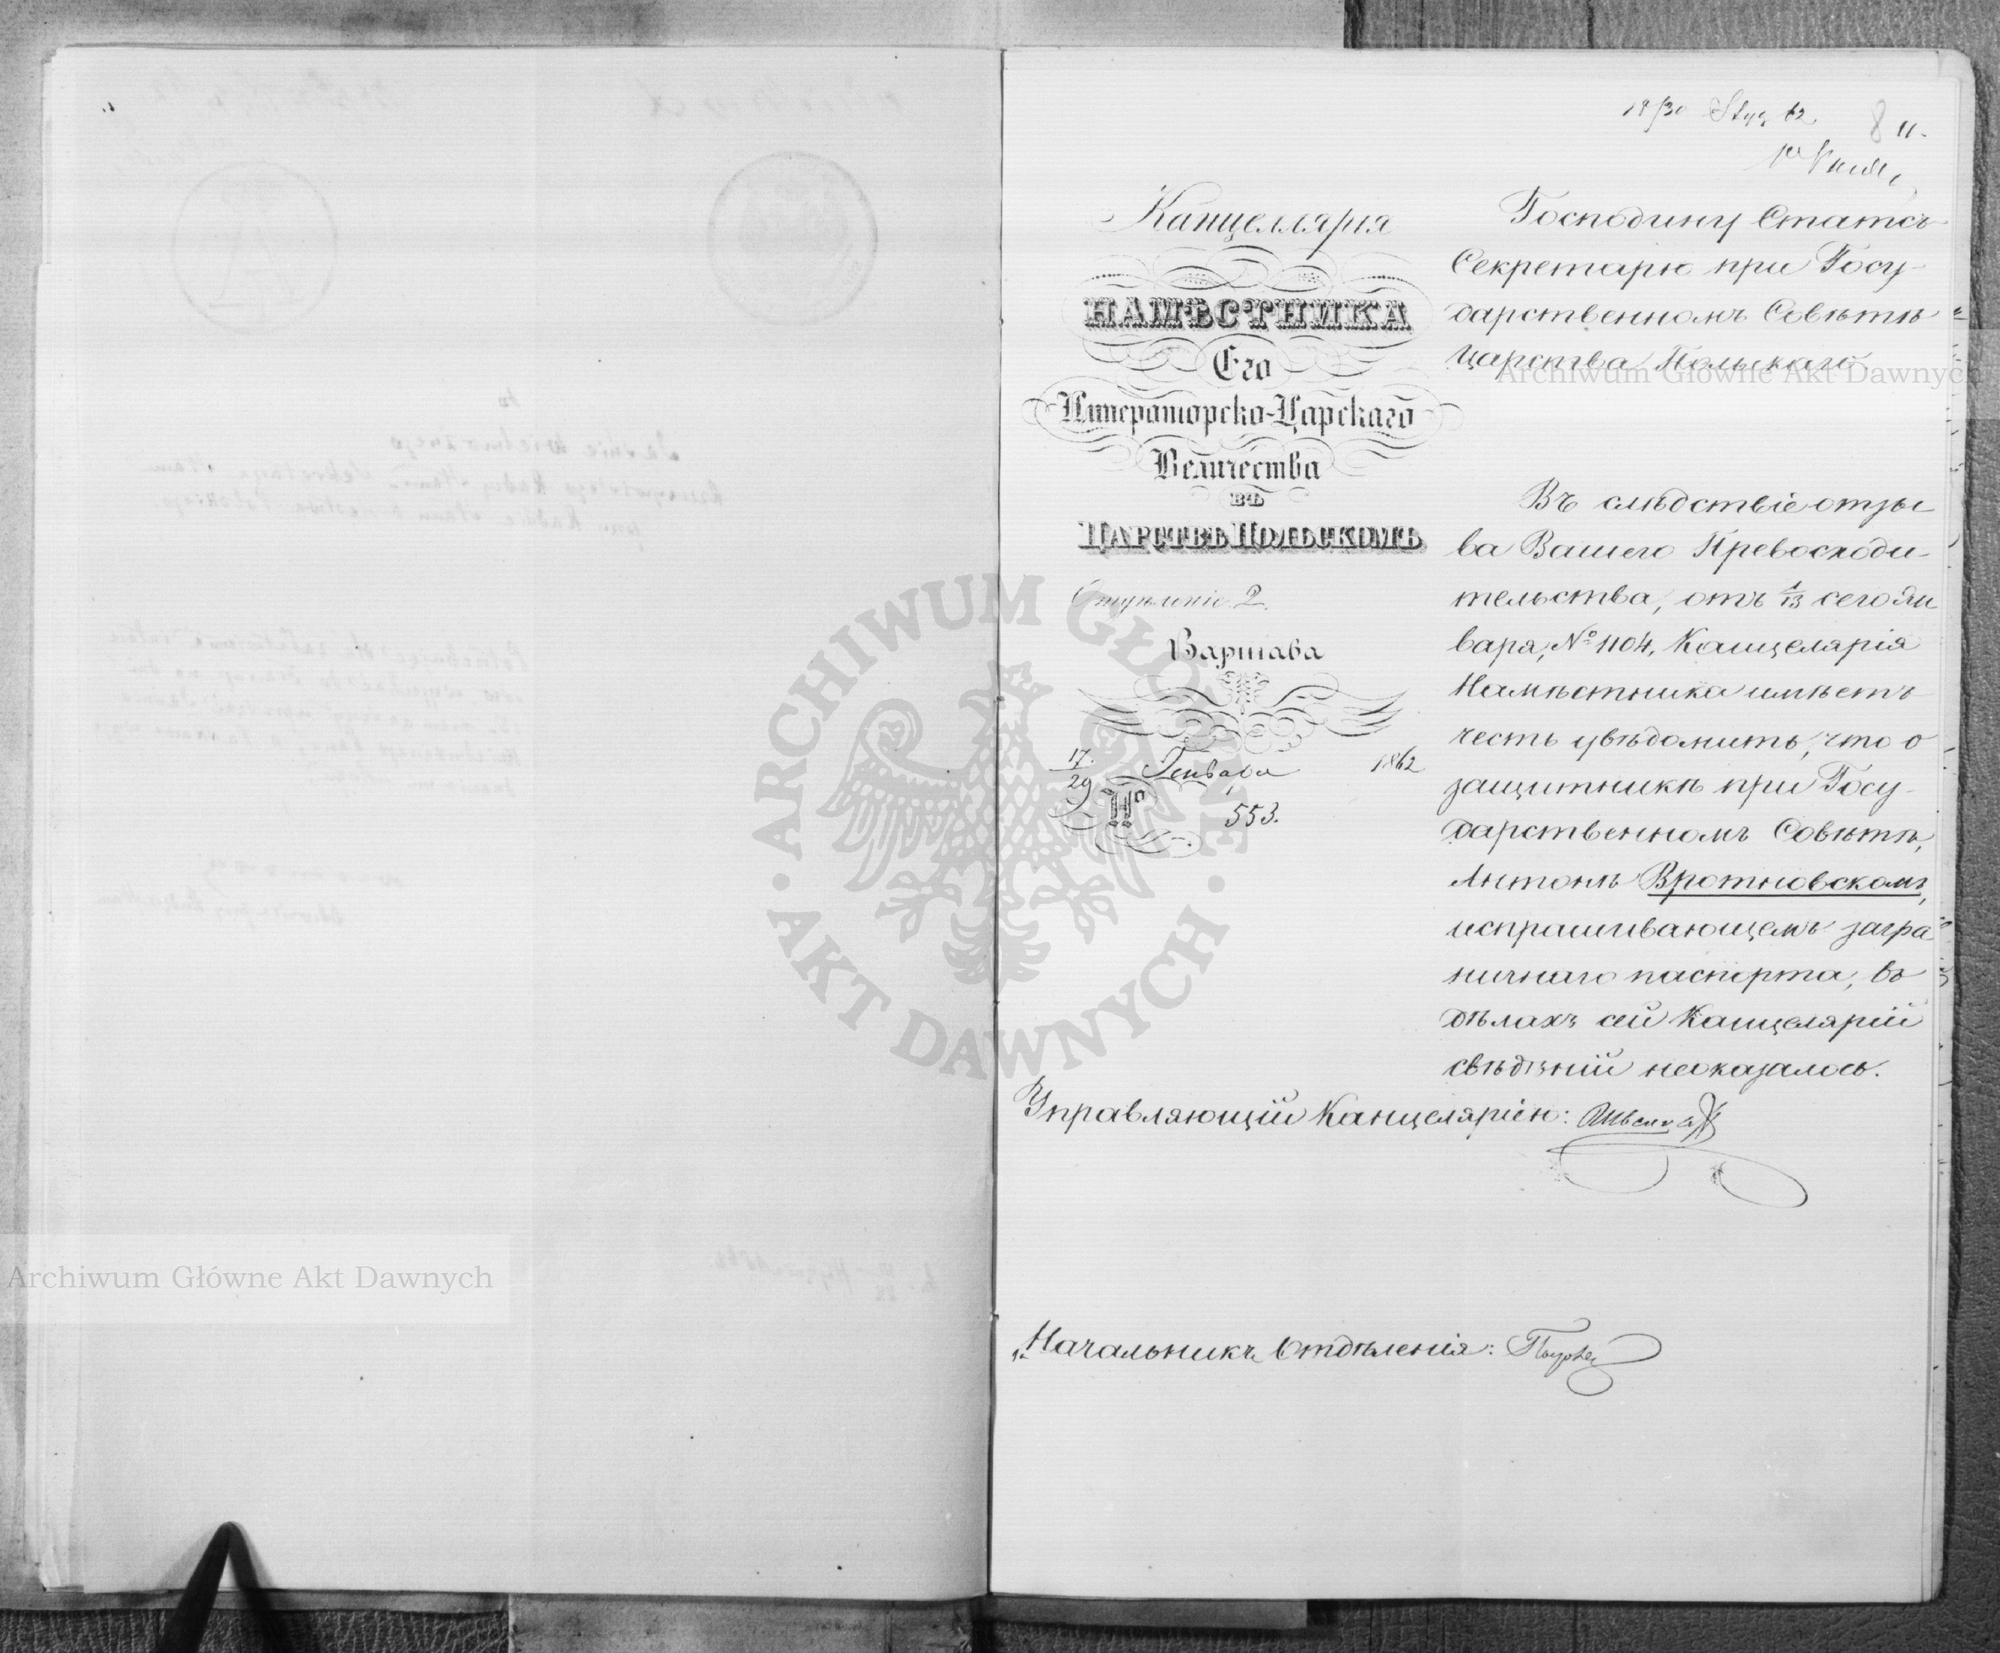 18/30 Stycz 62
8 11.
Канцеллярія
НАМѢСТНИКА
Его
Императорско-Царскаго
Величества
ВЪ
ЦАРСТВѢ ПОЛЬСКОМЪ
Отдѣленіе 2.
Варшава
17/29 Генваря 1862
№ 553.
Господину Статсъ
Секретарю при Госу-
дарственномъ Совѣтѣ
Царства Польскаго.
Въ слѣдствіе отзы-
ва Вашего Превосходи-
тельства, отъ 1/13 сего Ян
варя, № 1104, Канцелярія
Намѣстника имѣетъ
честь увѣдомить, что о
защитникѣ при Госу-
дарственномъ Совѣтѣ,
Антонѣ Вротновскомъ,
испрашивающемъ загра
ничнаго паспорта, въ
дѣлахъ сей Канцелярій
свѣдѣній неоказалось.
Управляющій Канцеляріею:
Начальникъ Отдѣленія:
ARCHIWUM GŁÓWNE · AKT DAWNYCH ·
Archiwum Główne Akt Dawnych
Archiwum Główne Akt Dawnych